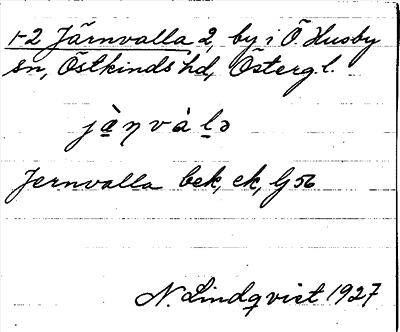 1-2 Järnvalla 2, by i Ö Husby
sn, Östkinds hd, Östergl.
jàṇvàḷə
Jernvalla bek, ek, Gj 56
N. Lindqvist 1927